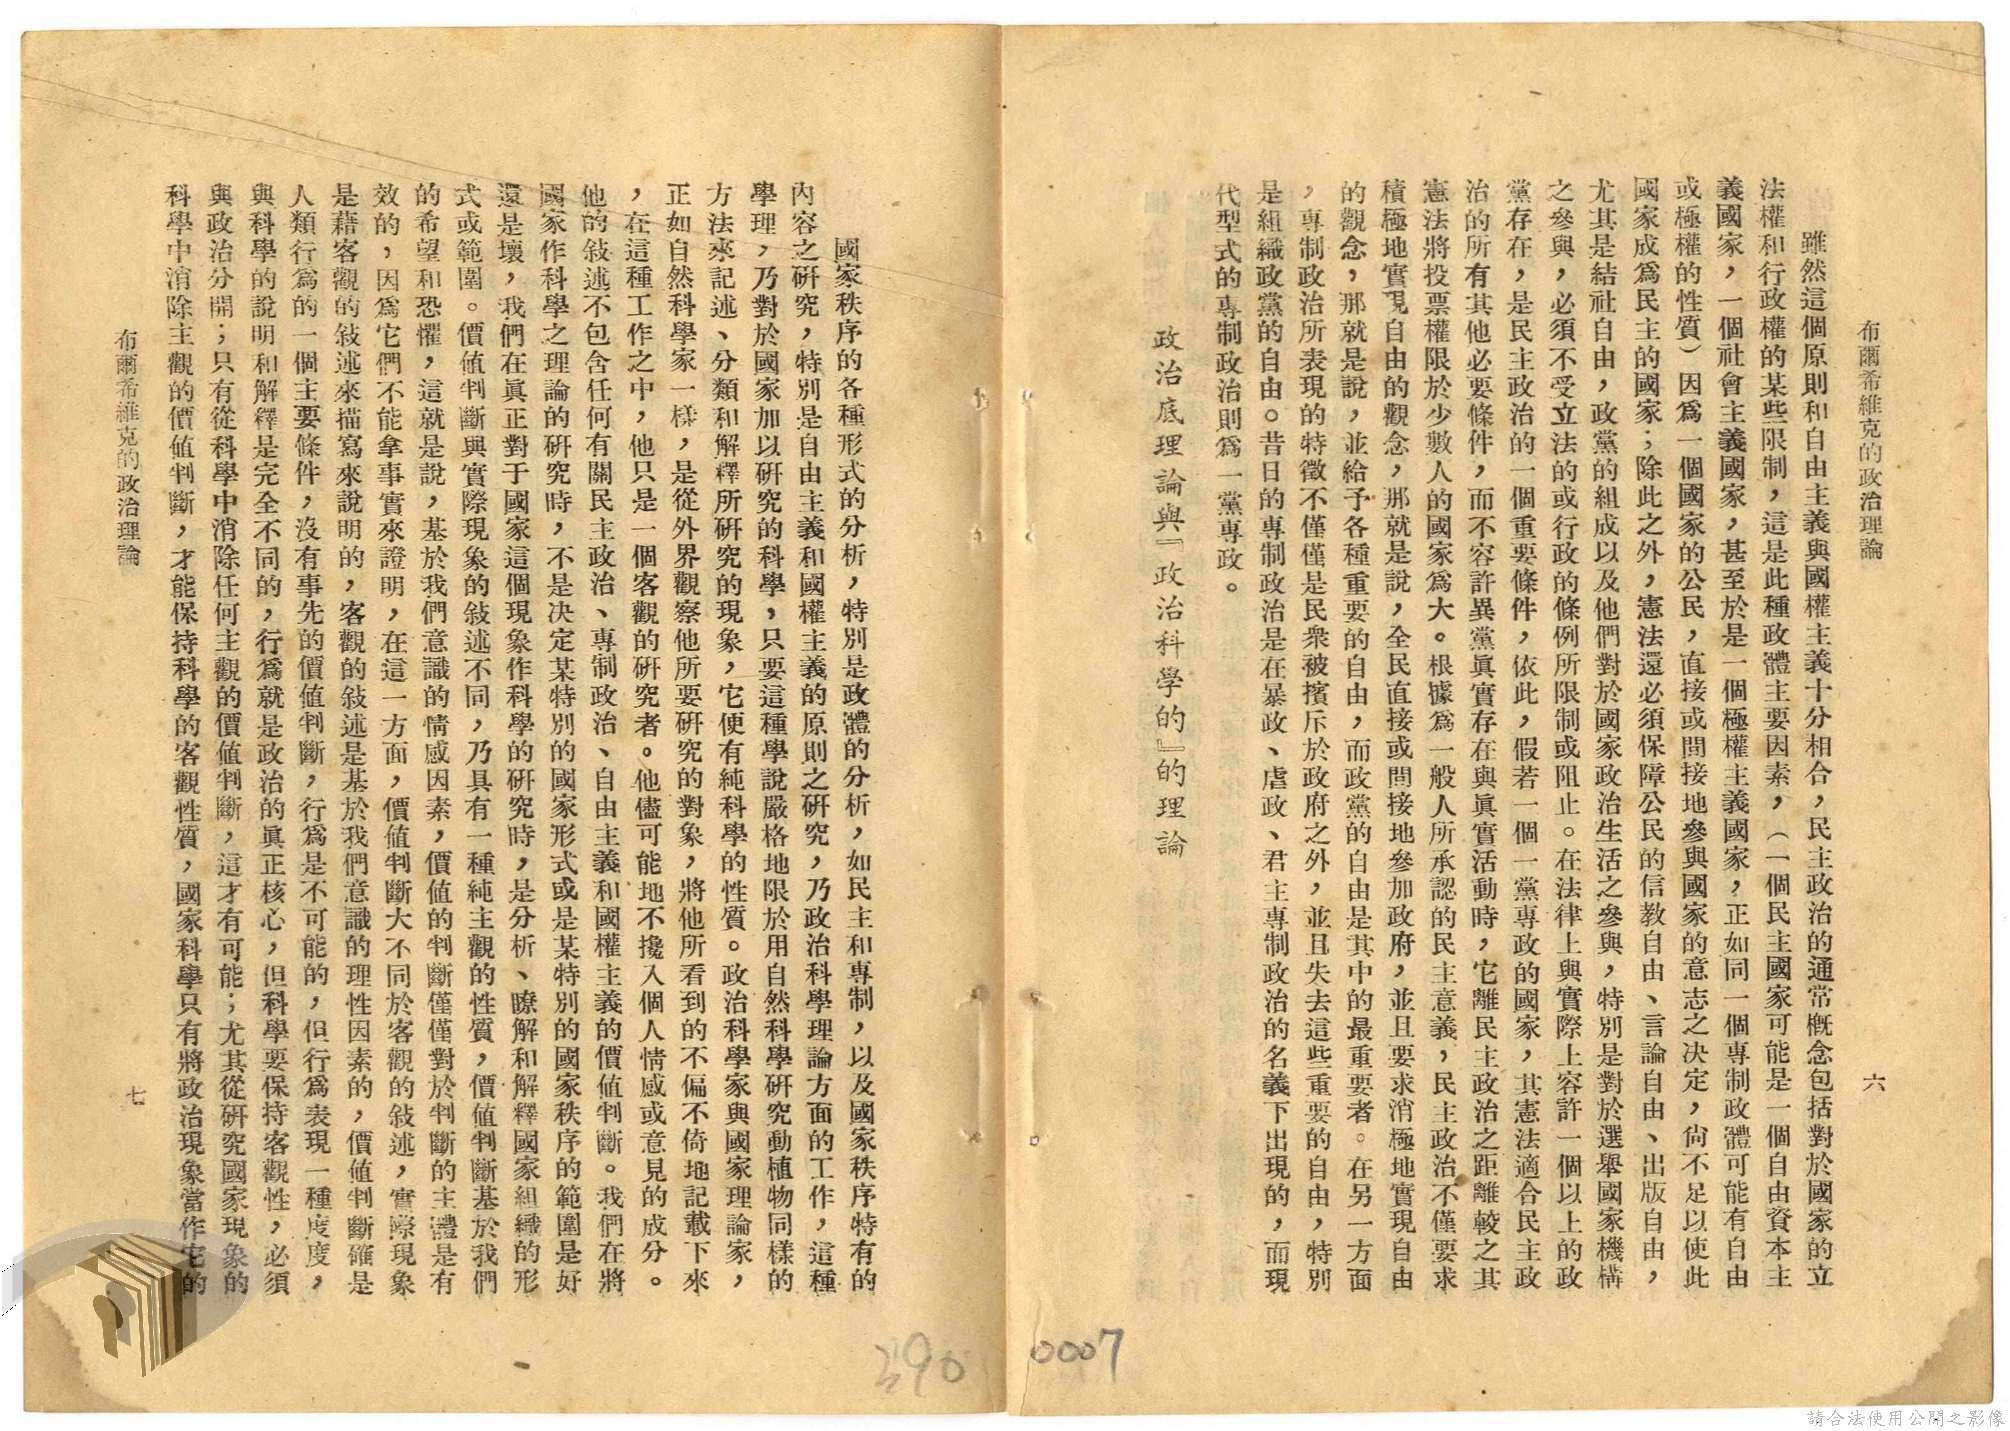 布爾希維克的政治理論
六
雖然這個原則和自由主義與國權主義十分相合，民主政治的通常概念包括對於國家的立
法權和行政權的某些限制，這是此種政體主要因素，（一個民主國家可能是一個自由資本主
義國家，一個社會主義國家，甚至於是一個極權主義國家，正如同一個專制政體可能有自由
或極權的性質）因為一個國家的公民，直接或間接地參與國家的意志之決定，尙不足以使此
國家成為民主的國家；除此之外，憲法還必須保障公民的信教自由、言論自由、出版自由，
尤其是結社自由，政黨的組成以及他們對於國家政治生活之參與，特別是對於選舉國家機構
之參與，必須不受立法的或行政的條例所限制或阻止。在法律上與實際上容許一個以上的政
黨存在，是民主政治的一個重要條件，依此，假若一個一黨專政的國家，其憲法適合民主政
治的所有其他必要條件，而不容許異黨眞實存在與眞實活動時，它離民主政治之距離較之其
憲法將投票權限於少數人的國家為大。根據為一般人所承認的民主意義，民主政治不僅要求
積極地實現自由的觀念，那就是說，全民直接或間接地參加政府，並且要求消極地實現自由
的觀念，那就是說，並給予各種重要的自由，而政黨的自由是其中的最重要者。在另一方面
，專制政治所表現的特徵不僅僅是民衆被擯斥於政府之外，並且失去這些重要的自由，特別
是組織政黨的自由。昔日的專制政治是在暴政、虐政、君主專制政治的名義下出現的，而現
代型式的專制政治則為一黨專政。
政治底理論與『政治科學的』的理論
國家秩序的各種形式的分析，特別是政體的分析，如民主和專制，以及國家秩序特有的
內容之研究，特別是自由主義和國權主義的原則之研究，乃政治科學理論方面的工作，這種
學理，乃對於國家加以研究的科學，只要這種學說嚴格地限於用自然科學研究動植物同樣的
方法來記述、分類和解釋所研究的現象，它便有純科學的性質。政治科學家與國家理論家，
正如自然科學家一樣，是從外界觀察他所要研究的對象，將他所看到的不偏不倚地記載下來
，在這種工作之中，他只是一個客觀的研究者。他儘可能地不攙入個人情感或意見的成分。
他的敍述不包含任何有關民主政治、專制政治、自由主義和國權主義的價値判斷。我們在將
國家作科學之理論的研究時，不是決定某特別的國家形式或是某特別的國家秩序的範圍是好
還是壞，我們在眞正對于國家這個現象作科學的研究時，是分析、瞭解和解釋國家組織的形
式或範圍。價値判斷與實際現象的敍述不同，乃具有一種純主觀的性質，價値判斷基於我們
的希望和恐懼，這就是說，基於我們意識的情感因素，價値的判斷僅僅對於判斷的主體是有
效的，因為它們不能拿事實來證明，在這一方面，價値判斷大不同於客觀的敍述，實際現象
是藉客觀的敍述來描寫來說明的，客觀的敍述是基於我們意識的理性因素的，價値判斷確是
人類行為的一個主要條件，沒有事先的價値判斷，行為是不可能的，但行為表現一種度度，
與科學的說明和解釋是完全不同的，行為就是政治的眞正核心，但科學要保持客觀性，必須
與政治分開；只有從科學中消除任何主觀的價値判斷，這才有可能；尤其從研究國家現象的
科學中消除主觀的價値判斷，才能保持科學的客觀性質，國家科學只有將政治現象當作它的
布爾希維克的政治理論
七
290
0007
請合法使用公開之影像